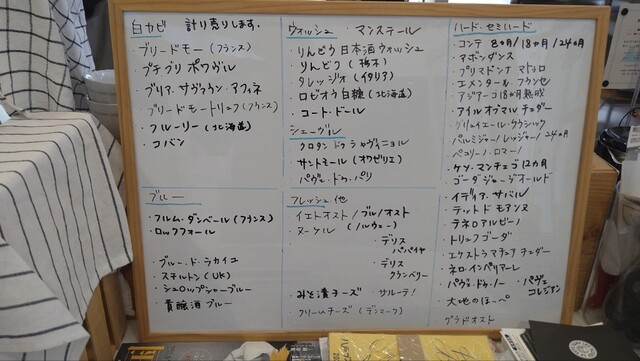 白カビ 計り売りします。
ブリードモー(フランス)
プチグリ ポワヴル
ブリア・サヴァラン・アフィネ
ブリードモートリュフ(フランス)
・フルーリー(北海道)
・コバン
ウォッシュ ・マンステール
・りんどう日本酒ウォッシュ
・りんどう(栃木)
・タレッジオ(イタリア)
・ロビオウ白糠(北海道)
・コート・ドール
シェーヴル
・クロタン ドゥ シャヴィニョル
・サントモール(オワゼリエ)
・パヴェ・ドゥ・パリ
ハード・セミハード
・コンテ 8ヶ月/18ヶ月/24ヶ月
・アボンダンス
・プリマドンナ マトゥロ
・エメンタール・フランセ
・アジアーゴ18か月熟成
・アイルオブマル チェダー
・グリュイエール・クラシック
・パルミジャーノ レッジャーノ 24ヵ月
・ペコリーノ・ロマーノ
・ケソ・マンチェゴ 12カ月
・ゴーダジャージーオールド
・イディア・サバル
・テットドモアンヌ
・テネロアルビーノ
・トリュフゴーダ
・エクストラマチュア チェダー
・ネロ・インペリアーレ
・パヴェ・ドゥ・ノー ・パヴェ コレジアン
・大地のほっぺ
グラドオスト
ブルー
・フルム・ダンベール(フランス)
・ロックフォール
・ブルー・ド・ラカイユ
・スチルトン(UK)
・シュロップシャーブルー
・貴醸酒ブルー
フレッシュ 他
・イエトオスト/ブルノオスト
・ヌーケル(ノルウェー)
・デリス パパイヤ
・デリス クランベリー
・みそ漬チーズ サルーテ!
・クリームチーズ(デンマーク)